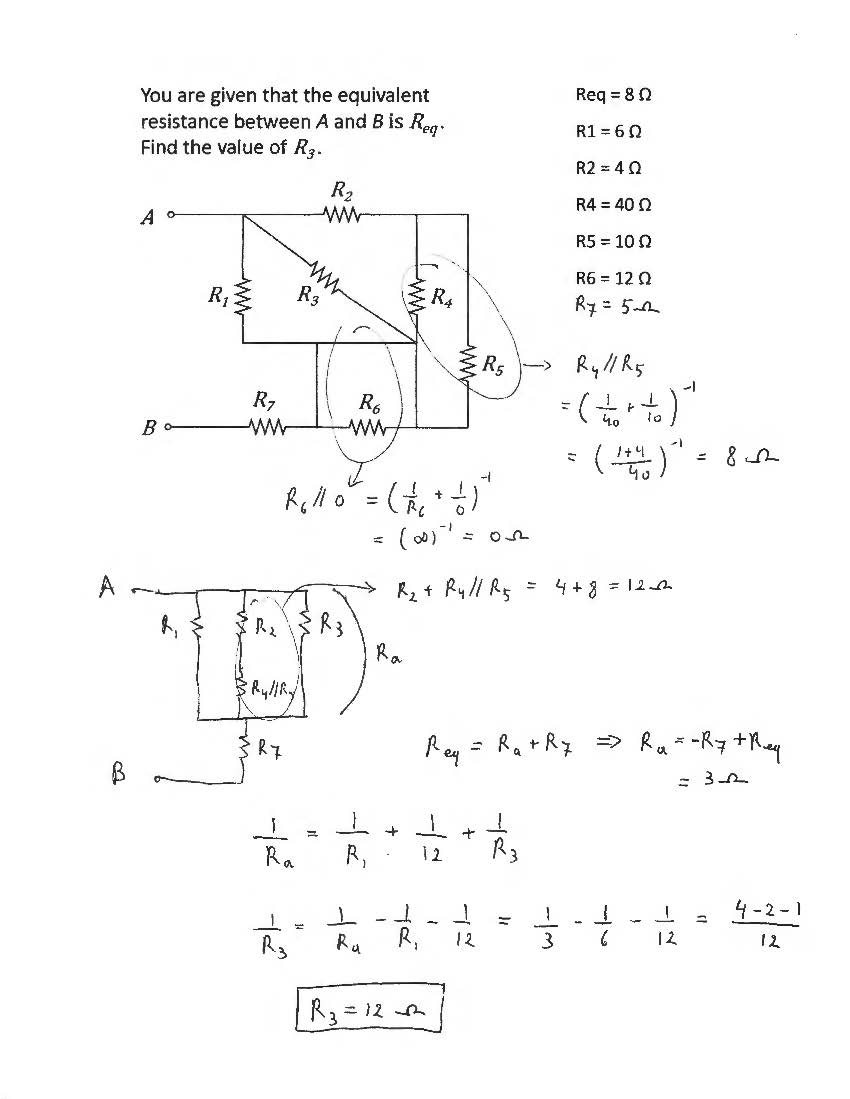 You are given that the equivalent
resistance between A and B is R_eq.
Find the value of R_3.
Req = 8 Ω
R1 = 6 Ω
R2 = 4 Ω
R4 = 40 Ω
R5 = 10 Ω
R6 = 12 Ω
R_7 = 5 Ω
R_2
A
R_1
R_3
R_4
R_5
R_7
R_6
B
→ R_4 // R_5
= (1/40 + 1/10)^-1
= ((1+4)/40)^-1 = 8 Ω
R_6 // 0 = (1/R_6 + 1/0)^-1
= (∞)^-1 = 0 Ω
A
→ R_2 + R_4 // R_5 = 4 + 8 = 12 Ω
R_1
R_2
R_3
R_a
R_4//R_5
R_7
B
R_eq = R_a + R_7 ⇒ R_a = -R_7 + R_eq
= 3 Ω
1/R_a = 1/R_1 + 1/12 + 1/R_3
1/R_3 = 1/R_a - 1/R_1 - 1/12 = 1/3 - 1/6 - 1/12 = (4-2-1)/12
R_3 = 12 Ω